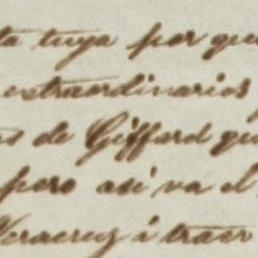 ta tuya por que
extraordinarios
os de Giffard que
pero asi va el
Veracruz á traer